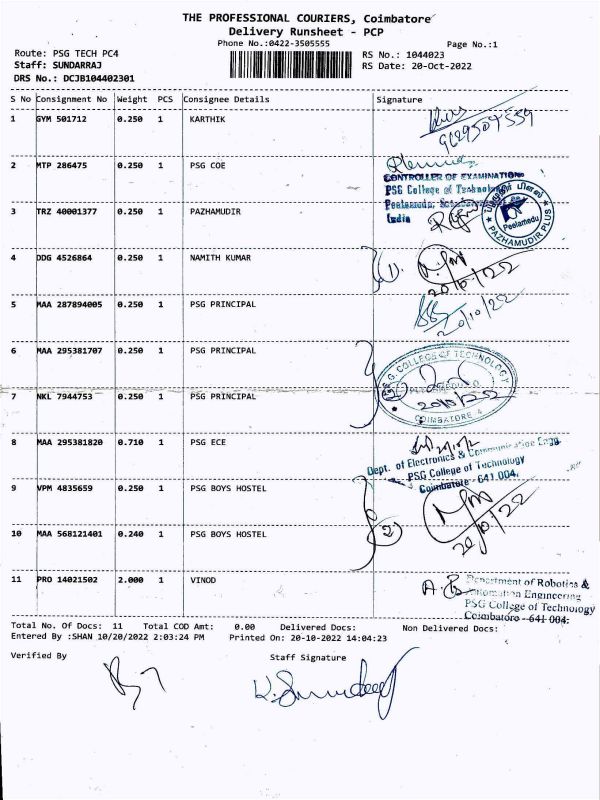 THE PROFESSIONAL COURIERS, Coimbatore
Delivery Runsheet - PCP
Phone No.:0422-3505555
Page No.:1
Route: PSG TECH PC4
Staff: SUNDARRAJ
DRS No.: DCJB104402301
RS No.: 1044023
RS Date: 20-Oct-2022
S No Consignment No Weight PCS Consignee Details Signature
1 GYM 501712 0.250 1 KARTHIK
9629507559
2 MTP 286475 0.250 1 PSG COE
CONTROLLER OF EXAMINATIONS
PSG College of Technology
Peelamedu,
India
3 TRZ 40001377 0.250 1 PAZHAMUDIR
Peelamedu
PAZHAMUDIR PLUS
4 DDG 4526864 0.250 1 NAMITH KUMAR
20/10/22
5 MAA 287894005 0.250 1 PSG PRINCIPAL
20/10/22
6 MAA 295381707 0.250 1 PSG PRINCIPAL
P.S.G. COLLEGE OF TECHNOLOGY
COIMBATORE 4
20/10/22
7 NKL 7944753 0.250 1 PSG PRINCIPAL
8 MAA 295381820 0.710 1 PSG ECE
Dept. of Electronics & Communication Engg.
PSG College of Technology
Coimbatore - 641 004.
9 VPM 4835659 0.250 1 PSG BOYS HOSTEL
2
20/10/22
10 MAA 568121401 0.240 1 PSG BOYS HOSTEL
11 PRO 14021502 2.000 1 VINOD
Department of Robotics &
Automation Engineering
PSG College of Technology
Coimbatore - 641 004.
Total No. Of Docs: 11 Total COD Amt: 0.00 Delivered Docs: Non Delivered Docs:
Entered By :SHAN 10/20/2022 2:03:24 PM Printed On: 20-10-2022 14:04:23
Verified By Staff Signature